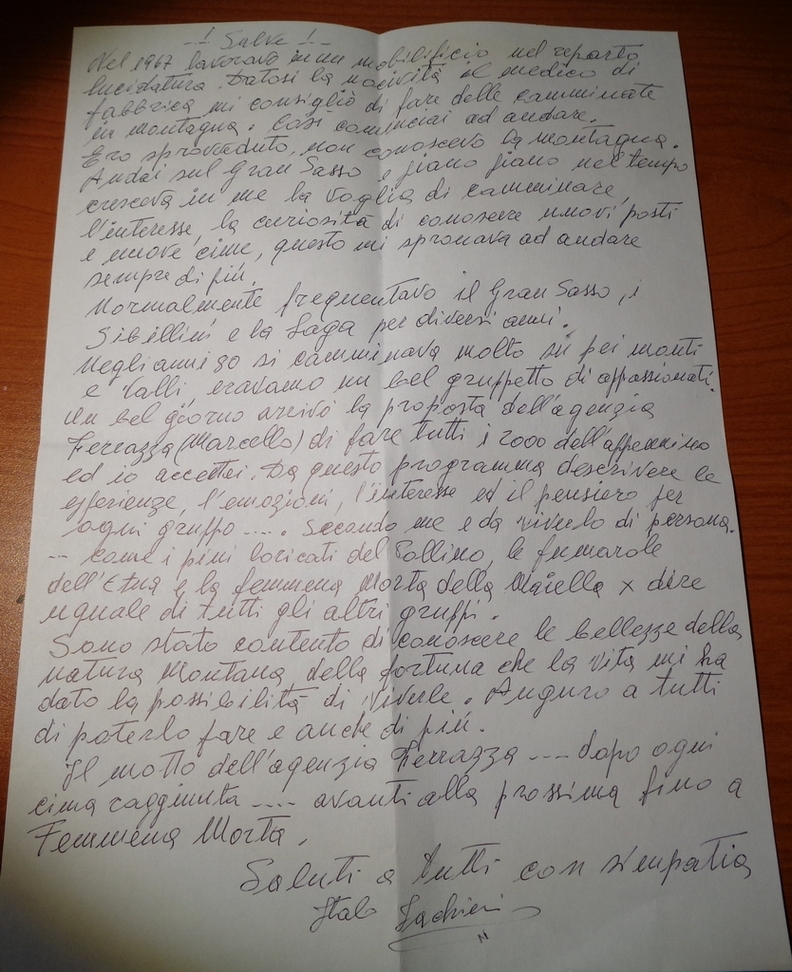 -! Salve !-
Nel 1967 lavoravo in un mobilificio nel reparto
lucidatura. Datosi la nocività il medico di
fabbrica mi consigliò di fare delle camminate
in montagna. Così cominciai ad andare.
Ero sprovveduto, non conoscevo la montagna.
Andai sul Gran Sasso e piano piano nel tempo
cresceva in me la voglia di camminare,
l'interesse, la curiosità di conoscere nuovi posti
e nuove cime, questo mi spronava ad andare
sempre di più.
Normalmente frequentavo il Gran Sasso, i
Sibillini e la Laga per diversi anni.
Negli anni 80 si camminava molto su pei monti
e valli, eravamo un bel gruppetto di appassionati.
Un bel giorno arrivò la proposta dell'agenzia
Ferrazza (Marcello) di fare tutti i 2000 dell'appennino
ed io accettai. Da questo programma descrivere le
esperienze, l'emozioni, l'interesse ed il pensiero per
ogni gruppo .... . Secondo me e da viverlo di persona.
-- come i pini loricati del Pollino, le fumarole
dell'Etna e la femmena Morta della Maiella x dire
uguale di tutti gli altri gruppi.
Sono stato contento di conoscere le bellezze della
natura Montana, della fortuna che la vita mi ha
dato la possibilità di viverle. Auguro a tutti
di poterlo fare e anche di più.
Il motto dell'agenzia Ferrazza ---- dopo ogni
cima raggiunta .... avanti alla prossima fino a
Femmena Morta.
Saluti a tutti con simpatia
Italo